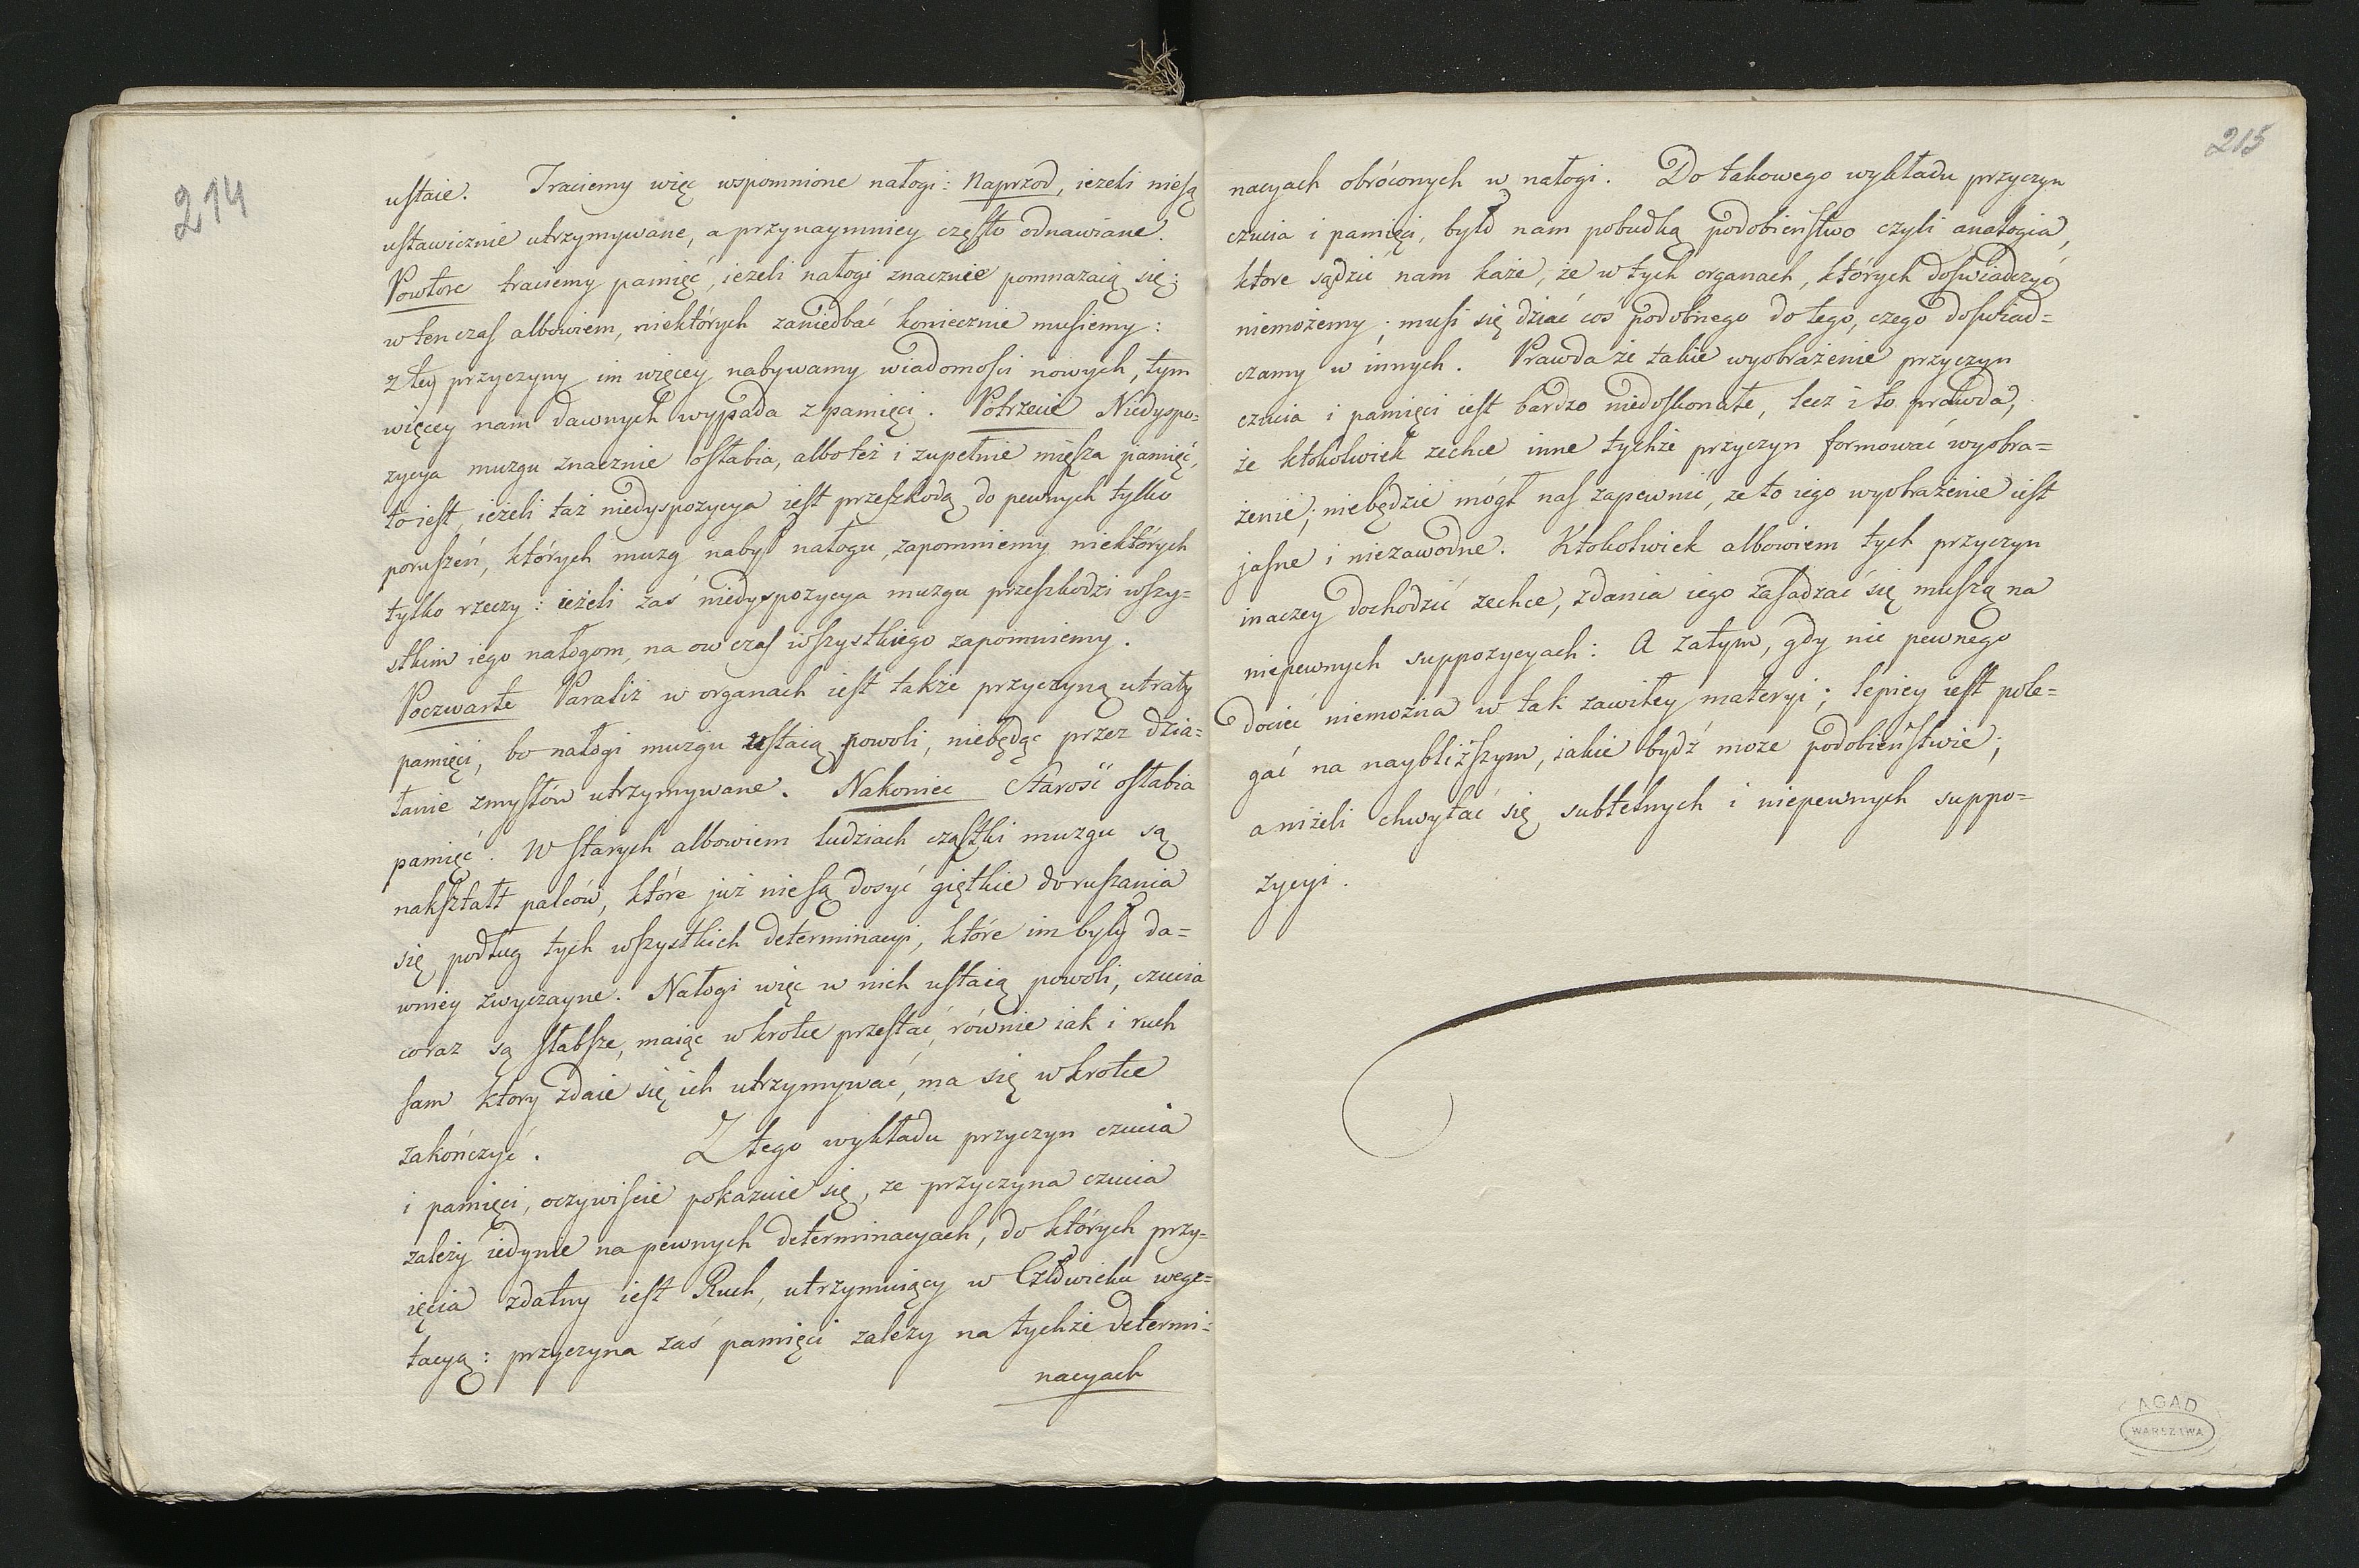 214
ustaie. Traciemy więc wspomnione nałogi: Naprzod, ieżeli niesą
ustawicznie utrzymywane, a przynaymniey często odnawiane.
Powtore traciemy pamięć, ieżeli nałogi znacznie pomnażaią się;
w ten czas albowiem, niektórych zaniedbać koniecznie musiemy:
z tey przyczyny im więcey nabywamy wiadomości nowych, tym
więcey nam dawnych wypada z pamięci. Potrzecie Niedyspo=
zycya muzgu znacznie osłabia, albo też i zupełnie miesza pamięć,
to iest, ieżeli taż niedyspozycya iest przeszkodą do pewnych tylko
poruszeń, których muzg nabył nałogu, zapomniemy niektórych
tylko rzeczy: ieżeli zaś niedyspozycya muzgu przeszkodzi wszy=
stkim iego nałogom, na ow czas wszystkiego zapomniemy.
Poczwarte Paraliż w organach iest także przyczyną utraty
pamięci, bo nałogi muzgu ustaią powoli, niebędąc przez dzia=
łanie zmysłów utrzymywane. Nakoniec Starość osłabia
pamięć. W starych albowiem ludziach cząstki muzgu są
nakształt palców, które już niesą dosyć giętkie do ruszania
się podług tych wszystkich determinacyi, które im były da=
wniey zwyczayne. Nałogi więc w nich ustaią powoli, czucia
coraz są słabsze, maiąc wkrotce przestać, równie iak i ruch
sam ktory zdaie się ich utrzymywać, ma się wkrotce
zakończyć. Z tego wykładu przyczyn czucia
i pamięci, oczywiście pokazuie się, że przyczyna czucia
zależy iedynie na pewnych determinacyach, do których przy=
ięcia zdatny iest Ruch, utrzymuiący w Człowieku wege=
tacyą: przyczyna zaś pamięci zależy na tychże determi=
nacyach
215
nacyach obróconych w nałogi. Do takowego wykładu przyczyn
czucia i pamięci, było nam pobudką podobieństwo czyli analogia,
ktore sądzić nam każe, że w tych organach, których doświadczyć
niemożemy; musi się dziać coś podobnego do tego, czego doświad=
czamy w innych. Prawda że takie wyobrażenie przyczyn
czucia i pamięci iest bardzo niedoskonałe, lecz i to prawda,
że ktokolwiek zechce inne tychże przyczyn formować wyobra=
żenie; niebędzie mógł nas zapewnić, że to iego wyobrażenie iest
jasne i niezawodne. Ktokolwiek albowiem tych przyczyn
inaczey dochodzić zechce, zdania iego zasadzać się muszą na
niepewnych suppozycyach: A zatym, gdy nic pewnego
dociec niemożna w tak zawiłey materyi; lepiey iest pole=
gać na naybliższym, iakie bydź może podobieństwie;
aniżeli chwytać się subtelnych i niepewnych suppo=
zycyi.
AGAD
WARSZAWA